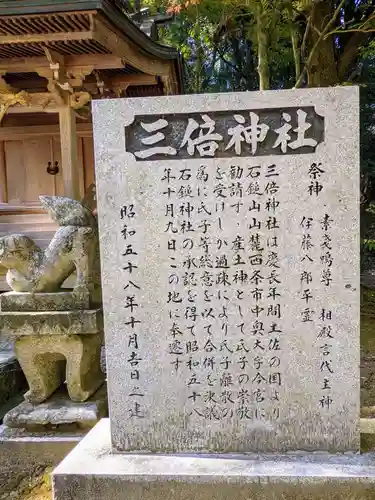 三倍神社
祭神 素戔鳴尊 相殿言代主神
伊藤八郎平霊
三倍神社は慶長年間土佐の国より
石鎚山山麓西条市中奥大字今宮に
勧請す、産土神として氏子の崇敬
を受けしが過疎により氏子離散の
為に氏子等総意を以て合併を決議
石鎚神社の承認を得て昭和五十八
年十月九日この地に奉遷す
昭和五十八年十月吉日之建